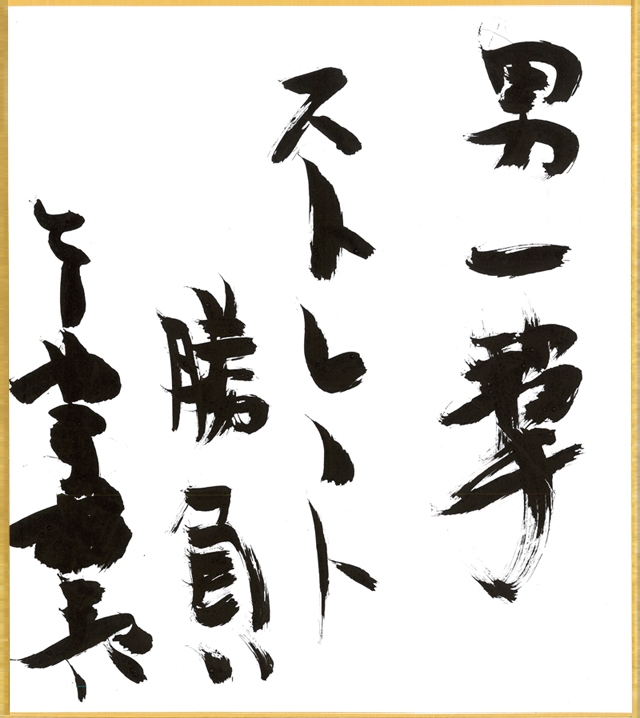 男一筆
ストレート
勝負